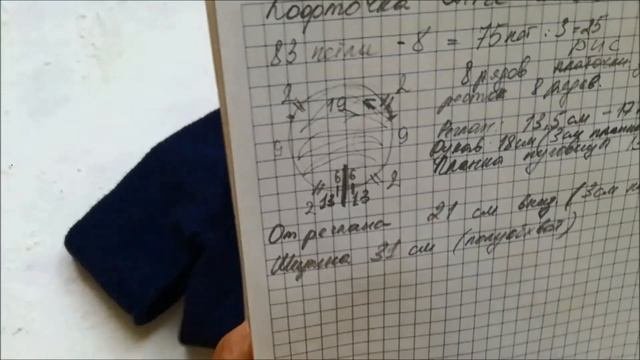 Кофточка
83 петли - 8 = 75 пет : 3 = 25
8 рядов
8 рядов.
2 19 2
Реглан: 13,5 см - 17
9 9
Рукав 18 см (3 см
Планка пуговицы
6 6
2 13 13 2
От реглана 21 см вниз (3 см
Ширина 31 см (полуобхват)